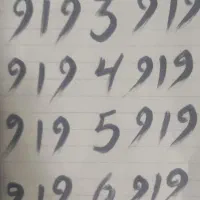 919 3 919
919 4 919
919 5 919
919 6 919